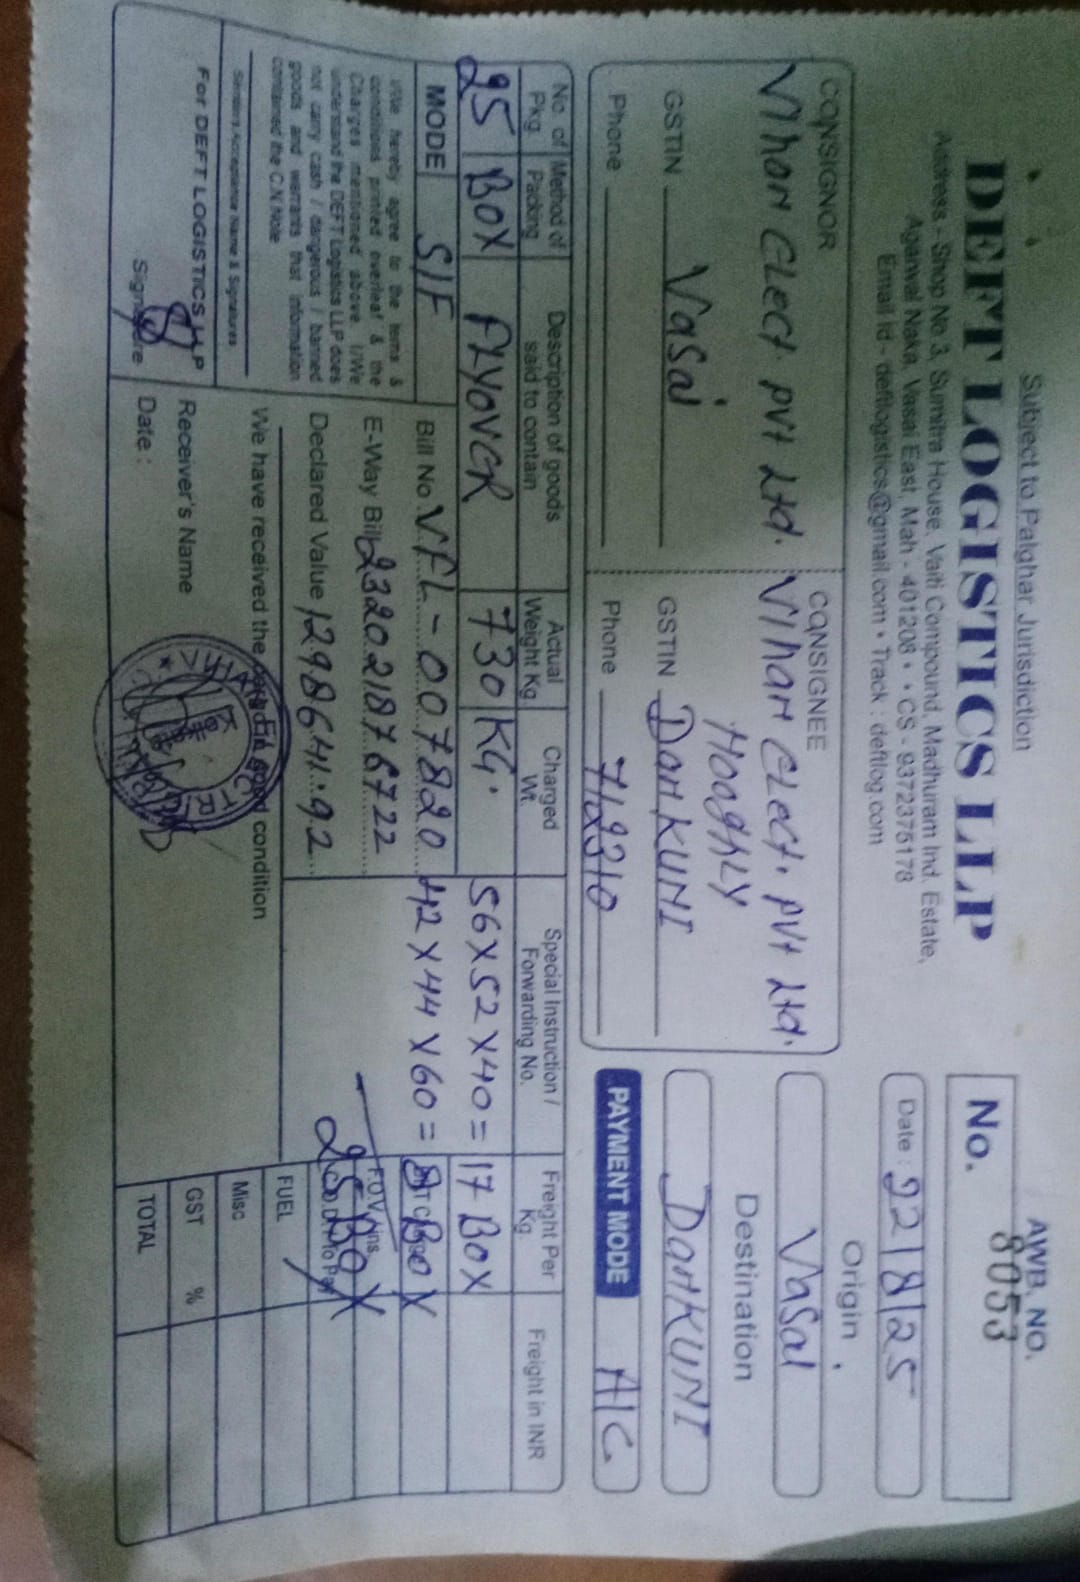 Subject to Palghar Jurisdiction
DEFT LOGISTICS LLP
Address - Shop No 3, Sumitra House, Vaiti Compound, Madhuram Ind. Estate,
Agarwal Naka, Vasai East, Mah - 401208 • CS - 9372375178
Email Id - deftlogistics@gmail.com • Track : deftlog.com
AWB. NO.
No. 8053
Date : 22/8/25
Origin
Vasai
Destination
DANKUNI
PAYMENT MODE A/C.
CONSIGNOR
CONSIGNEE
GSTIN Vasai
Phone
HOOGHLY
GSTIN DANKUNI
Phone 712310
No. of Pkg. Method of Packing Description of goods said to contain Actual Weight Kg. Charged Wt. Special Instruction / Forwarding No. Freight Per Kg Freight in INR
25 BOX 730 KG. 56 X 52 X 40 = 17 BOX
MODE Bill No. VEL - 007820 42 X 44 X 60 = 8 BOX
I/We hereby agree to the terms &
conditions printed overleaf & the
Charges mentioned above I/We
understand the DEFT Logistics LLP does
not carry cash / dangerous / banned
goods and warrants that information
contained the C.N Note
E-Way Bill 232021876722 F.O.V / Ins.
Declared Value 1298641.92 25 BOX
FUEL
We have received the goods in good condition
Misc
Senders Acceptance Name & Signatures
For DEFT LOGISTICS LLP
Receiver's Name
GST %
Signature
Date :
TOTAL